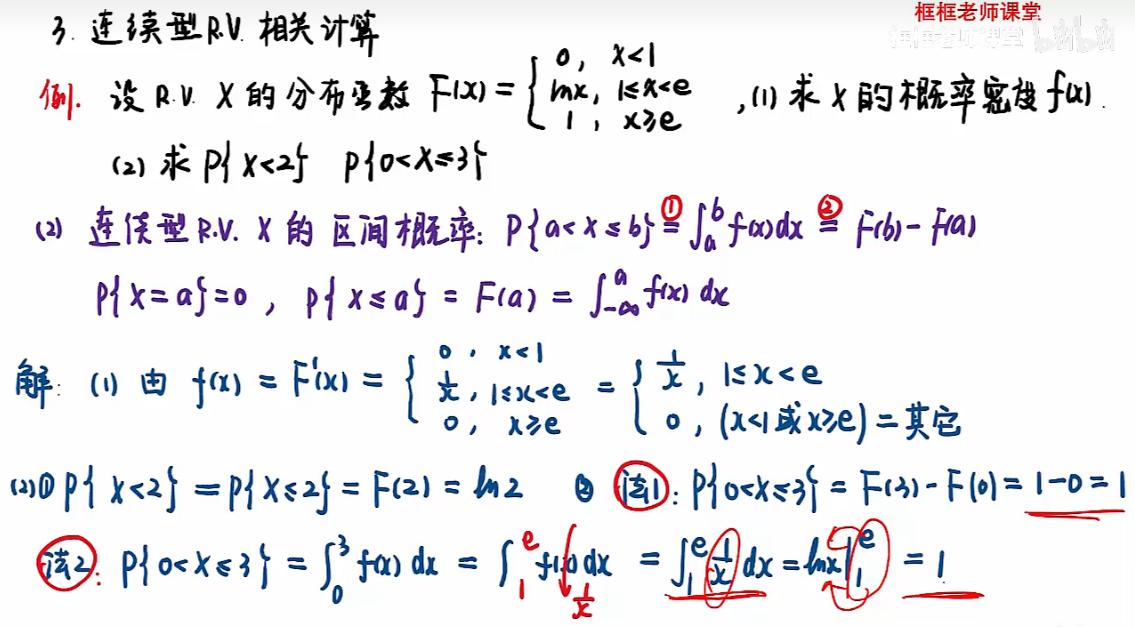 框框老师课堂
3. 连续型R.V. 相关计算
框框老师课堂 bilibili
例. 设 R.V. X 的分布函数 F(x) = { 0, x<1
lnx, 1≤x<e ,(1) 求 X 的概率密度 f(x).
1, x≥e
(2) 求 P{X<2} P{0<X≤3}
(2) 连续型R.V. X 的 区间概率: P{a<X≤b} ①= ∫_a^b f(x)dx ②= F(b)-F(a)
P{X=a}=0, P{X≤a} = F(a) = ∫_{-∞}^a f(x) dx
解: (1) 由 f(x) = F'(x) = { 0, x<1
1/x, 1≤x<e = { 1/x, 1≤x<e
0, x≥e 0, (x<1或x≥e)=其它
(2)① P{X<2} = P{X≤2} = F(2) = ln2 ② 法1: P{0<X≤3} = F(3)-F(0) = 1-0 = 1
法2: P{0<X≤3} = ∫_0^3 f(x) dx = ∫_1^e f(x) dx = ∫_1^e 1/x dx = lnx|_1^e = 1
1/x